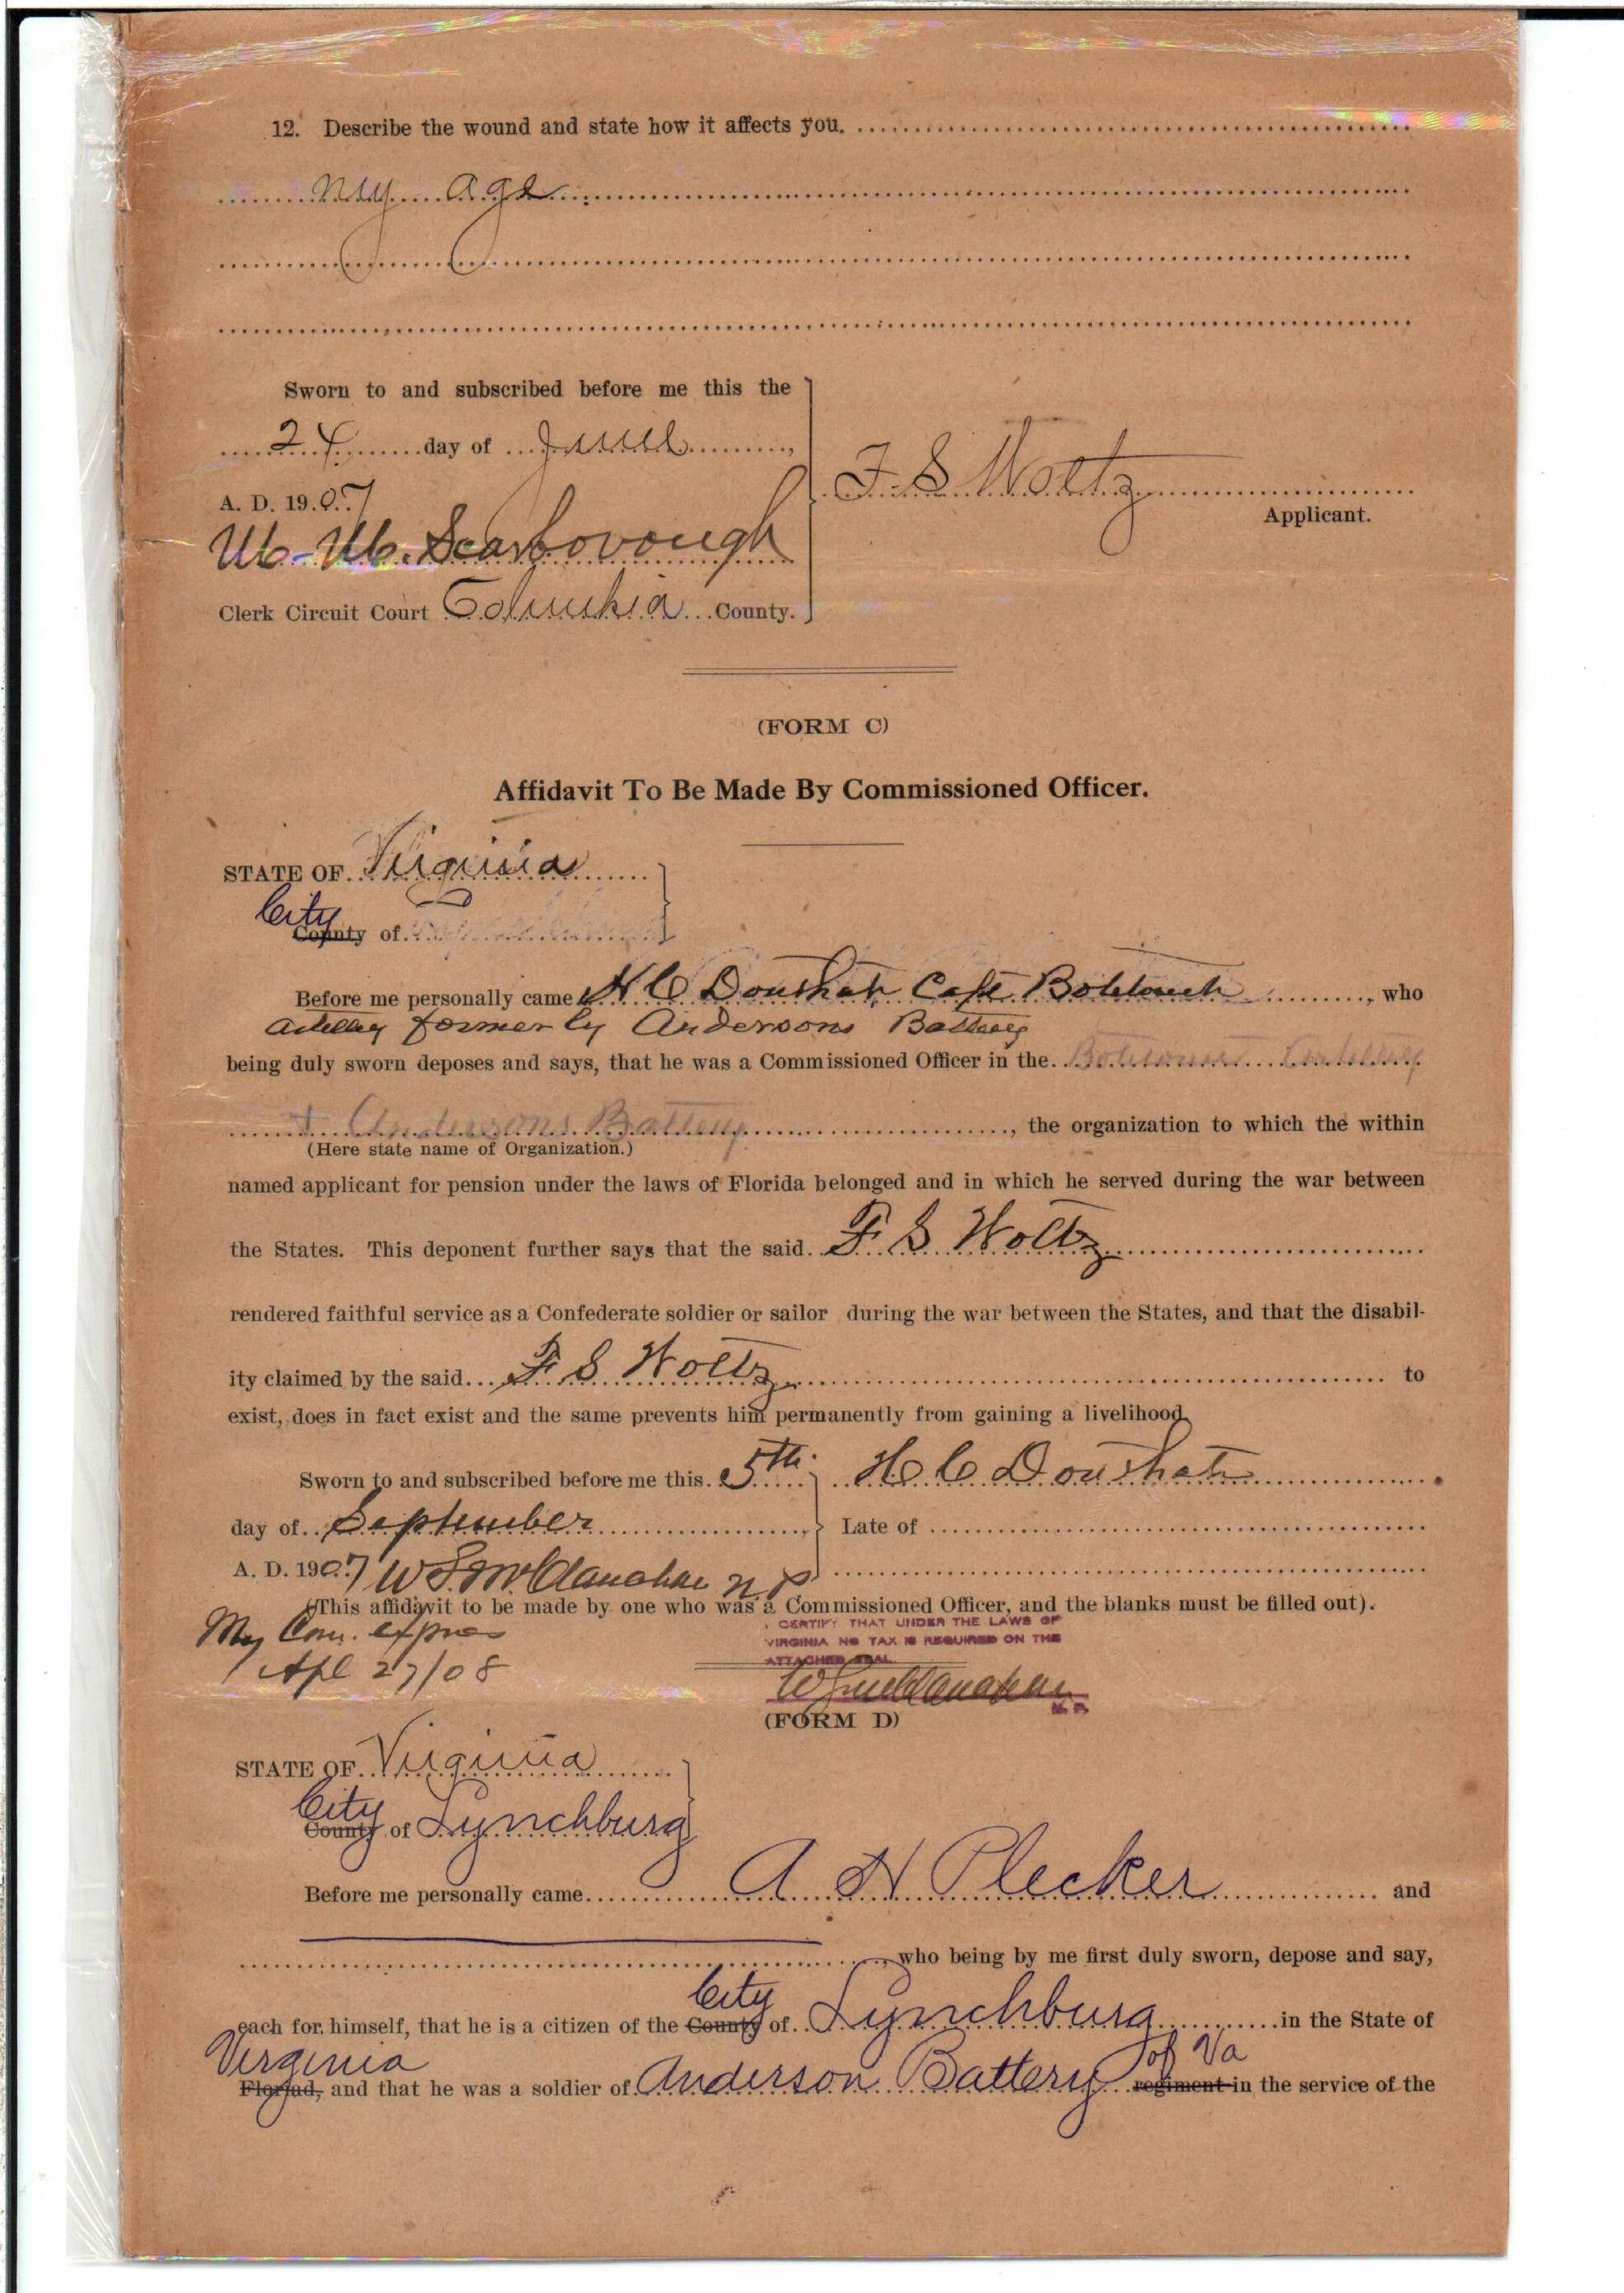 12. Describe the wound and state how it affects you.
my age
Sworn to and subscribed before me this the
24 day of June,
A. D. 1907
M. M. Scarborough
Clerk Circuit Court Columbia County.
F S Woltz
Applicant.
(FORM C)
Affidavit To Be Made By Commissioned Officer.
STATE OF Virginia
City
County of
Before me personally came H C Douthat Capt Botetourt, who
Artillery formerly Andersons Battery
being duly sworn deposes and says, that he was a Commissioned Officer in the Botetourt Artillery
+ Andersons Battery, the organization to which the within
(Here state name of Organization.)
named applicant for pension under the laws of Florida belonged and in which he served during the war between
the States. This deponent further says that the said F S Woltz
rendered faithful service as a Confederate soldier or sailor during the war between the States, and that the disabil-
ity claimed by the said F S Woltz to
exist, does in fact exist and the same prevents him permanently from gaining a livelihood
Sworn to and subscribed before me this 5th H C Douthat
day of September, Late of
A. D. 1907 W S McClanahan N P
(This affidavit to be made by one who was a Commissioned Officer, and the blanks must be filled out).
My Com. expires
Apl 27/08
I CERTIFY THAT UNDER THE LAWS OF
VIRGINIA NO TAX IS REQUIRED ON THE
ATTACHED SEAL.
W S McClanahan
N. P.
(FORM D)
STATE OF Virginia
City
County of Lynchburg
Before me personally came A H Plecker and
, who being by me first duly sworn, depose and say,
City
each for himself, that he is a citizen of the County of Lynchburg in the State of
Virginia of Va
Floriad, and that he was a soldier of Anderson Battery regiment in the service of the